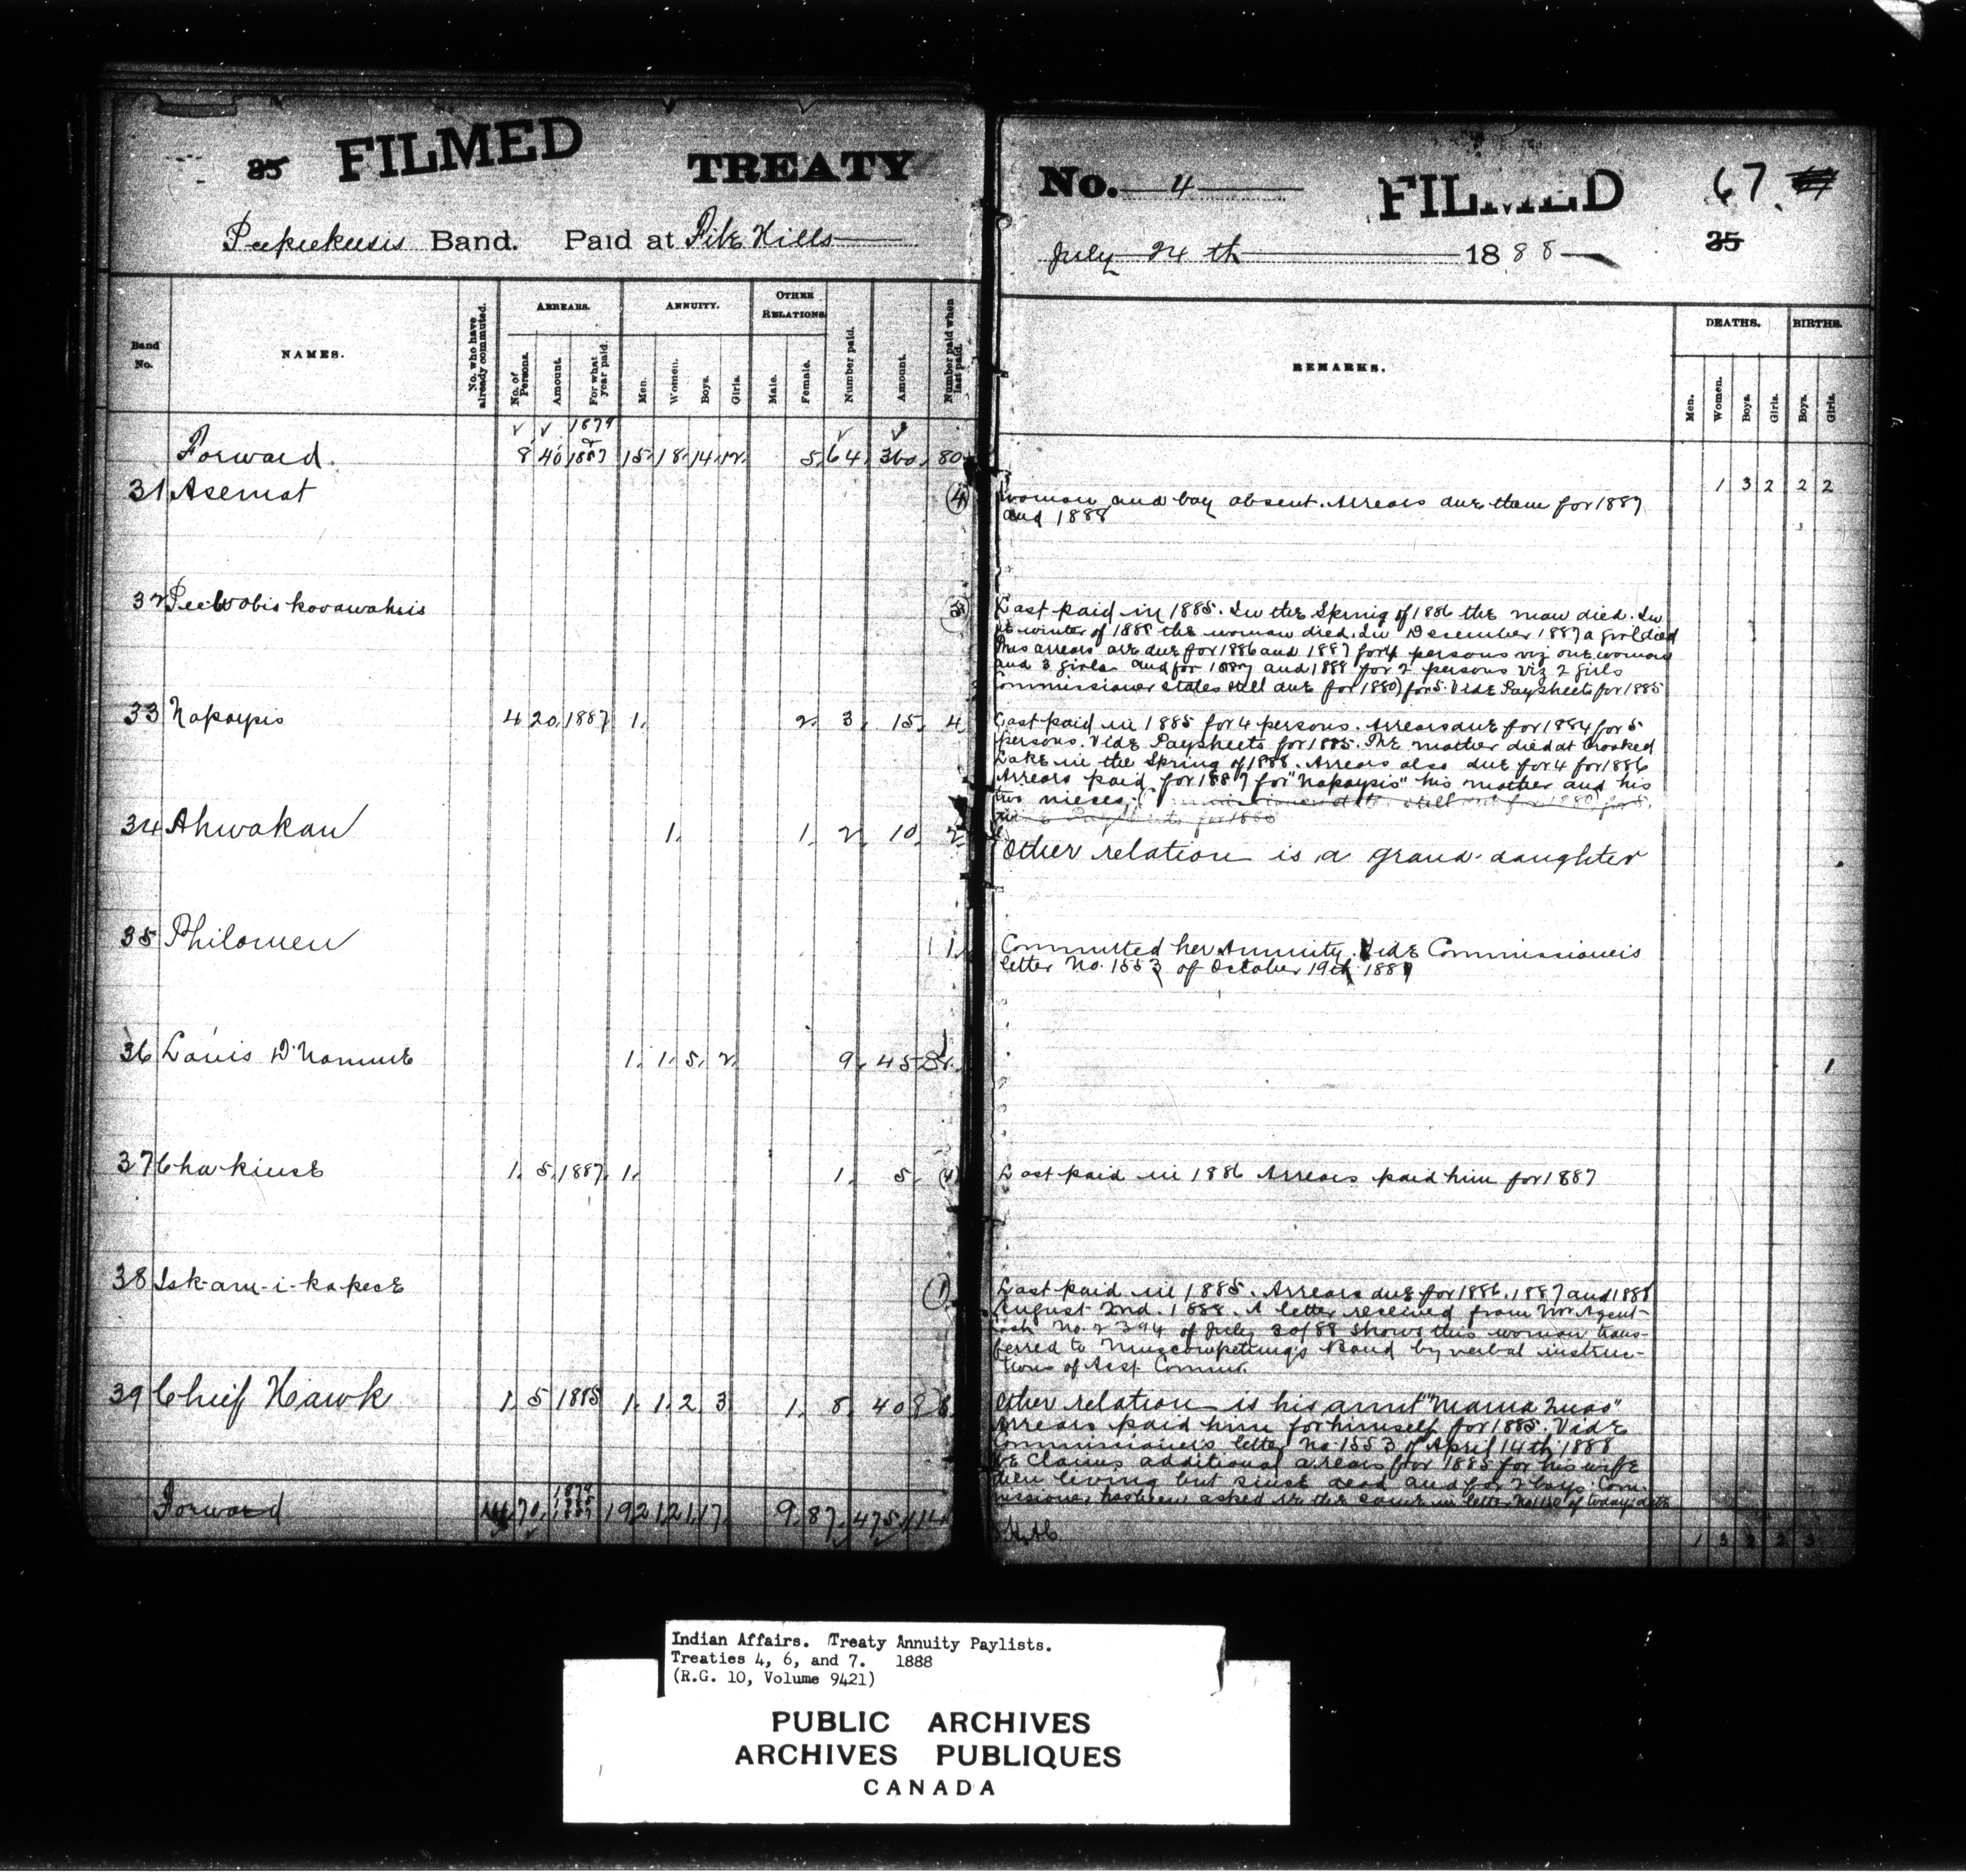 35 FILMED TREATY
Peepeekeesis Band. Paid at File Hills
Band No.
NAMES.
No. who have already commuted.
ARREARS.
No. of Persons.
Amount.
For what year paid.
ANNUITY.
Men.
Women.
Boys.
Girls.
OTHER RELATIONS
Male.
Female.
Number paid.
Amount.
Number paid when last paid.
1879
Forward. 8 40 1887 15 18 14 12 5 64 360 80
31 Asemat (4)
32
33 Napaypis 4 20 1887 1. 2. 3. 15. 4
34 Ahwakan 1. 1. 2. 10. 2
35 Philomen 1
36 Louis D'Nomme 1. 1. 5. 2. 9. 45 8
37 Chakiuse 1. 5. 1887. 1. 1. 5. (4)
38 Isk-am-i-kapece (1)
39 Chief Hawk 1. 5 1885 1. 1. 2 3 1. 8 40 8
Forward 14 70 19 21 21 17. 9. 87. 475. 114
No. 4 FILMED 67.
July 24th 1888
35
REMARKS.
DEATHS.
Men.
Women.
Boys.
Girls.
BIRTHS.
Boys.
Girls.
1 3 2 2 2
Woman and boy absent. Arrears due them for 1887
and 1888
Last paid in 1885. In the Spring of 1886 the man died. In
winter of 1888 the woman died. In December 1887 a girl died
arrears are due for 1886 and 1887 for 4 persons viz one woman
and 3 girls and for 1887 and 1888 for 2 persons viz 2 girls
Commissioner states still due for 1880 for 5. Vide Paysheets for 1885
Last paid in 1885 for 4 persons. Arrears due for 1884 for 5
persons. Vide Paysheets for 1885. The mother died at Crooked
Lake in the Spring of 1888. Arrears also due for 4 for 1886
Arrears paid for 1887 for "Napaypis" his mother and his
two nieces.
Other relation is a grand-daughter
Committed her Annuity. Vide Commissioner's
letter No. 1553 of October 19th 1887
1
Last paid in 1886 Arrears paid him for 1887
Last paid in 1885. Arrears due for 1886. 1887 and 1888
August 2nd. 1888. A letter received from Agent
No. 2394 of July 88 shows this woman trans-
ferred to Muscowpetung's Band by verbal instruc-
tions of Asst. Commr.
Other relation is his aunt
Arrears paid him for himself for 1885. Vide
Commissioner's letter No 1553 of April 14th 1888
He claims additional arrears for 1885 for his wife
then living but since dead and for 2 boys. Com-
missioner has been asked in letter of today's date
1 3 2 2 3
Indian Affairs. Treaty Annuity Paylists.
Treaties 4, 6, and 7. 1888
(R.G. 10, Volume 9421)
PUBLIC ARCHIVES
ARCHIVES PUBLIQUES
CANADA